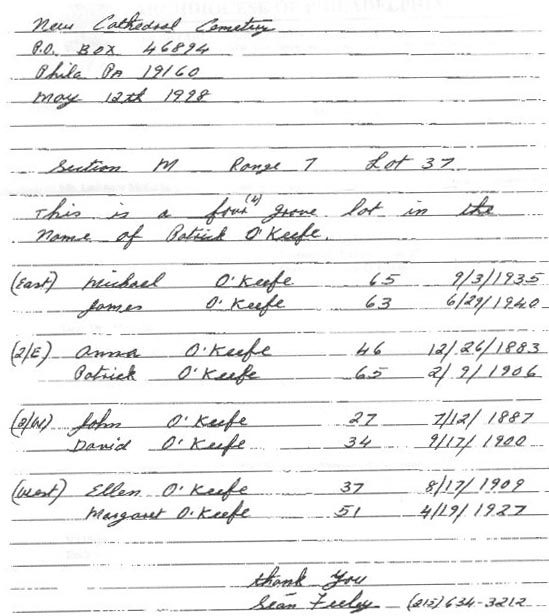 New Cathedral Cemetery
P.O. BOX 46894
Phila PA 19160
May 12th 1998
Section M Range 7 Lot 37
This is a four (4) grave lot in the
name of Patrick O'Keefe.
(East) Michael O'Keefe 65 9/3/1935
James O'Keefe 63 6/29/1940
(2/E) Anna O'Keefe 46 12/26/1883
Patrick O'Keefe 65 2/9/1906
(2/W) John O'Keefe 27 7/12/1887
David O'Keefe 34 9/17/1900
(West) Ellen O'Keefe 37 8/17/1909
Margaret O'Keefe 51 4/19/1927
Thank You
Seán Feeley (215) 634-3212